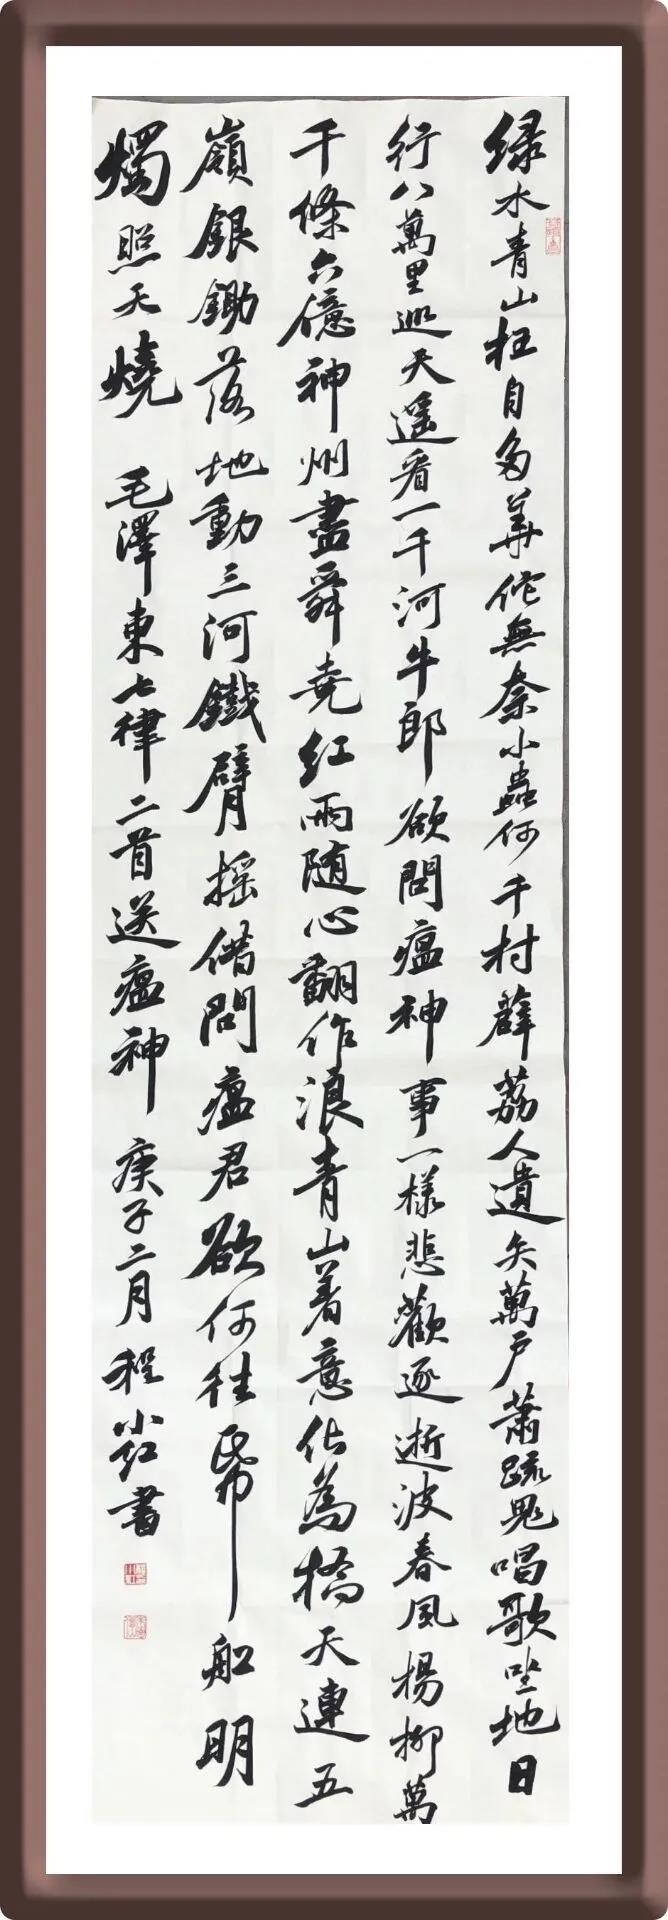 绿水青山枉自多華佗無奈小蟲何千村薜荔人遺矢萬戶蕭疏鬼唱歌坐地日
行八萬里巡天遥看一千河牛郎欲問瘟神事一樣悲歡逐逝波春風楊柳萬
千條六億神州盡舜尧红雨随心翻作浪青山着意化為橋天連五
嶺銀鋤落地動三河鐵臂摇借問瘟君欲何往帋船明
燭照天燒 毛澤東七律二首送瘟神 庚子二月 程小红書